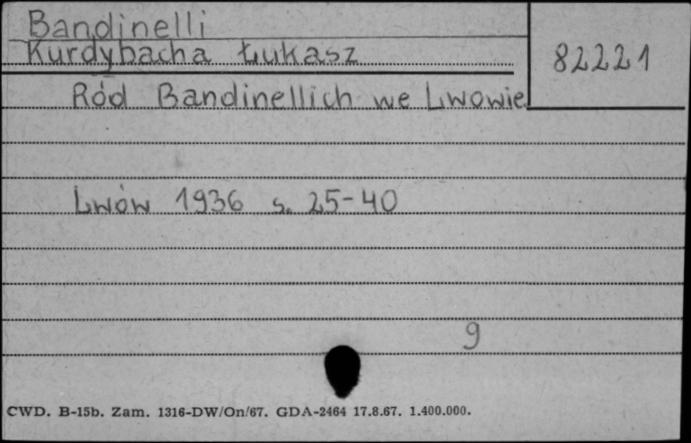 Bandinelli
Kurdybacha Łukasz
82221
Ród Bandinellich we Lwowie
Lwów 1936 s. 25-40
9
CWD. B-15b. Zam. 1316-DW/On/67. GDA-2464 17.8.67. 1.400.000.